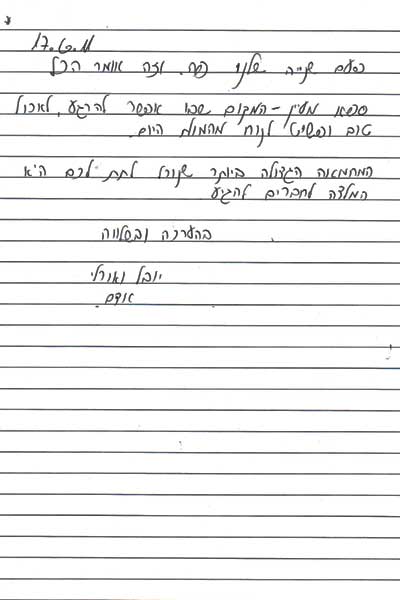 17.6.11
פעם שנייה שלנו פה. וזה אומר הכל
ספא מעיין - המקום שבו אפשר להרגע, לאכול
טוב ופשוט לנוח מהמולת היום.
המחמאה הגדולה ביותר שנוכל לתת לכם היא
המלצה לחברים להגיע
בהערכה ובשלווה
יובל ואורלי
אודם